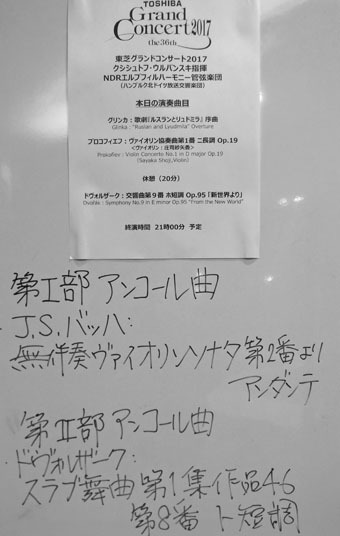 TOSHIBA
Grand
Concert 2017
the 36th
東芝グランドコンサート2017
クシシュトフ・ウルバンスキ指揮
NDRエルプフィルハーモニー管弦楽団
(ハンブルク北ドイツ放送交響楽団)
本日の演奏曲目
グリンカ:歌劇「ルスランとリュドミラ」序曲
Glinka : "Ruslan and Lyudmila" Overture
プロコフィエフ:ヴァイオリン協奏曲第1番 ニ長調 Op.19
<ヴァイオリン:庄司紗矢香>
Prokofiev : Violin Concerto No.1 in D major Op.19
(Sayaka Shoji,Violin)
休憩(20分)
ドヴォルザーク:交響曲第9番 ホ短調 Op.95「新世界より」
Dvořák : Symphony No.9 in E minor Op.95 "From the New World"
終演時間 21時00分 予定
第I部 アンコール曲
J.S.バッハ:
無伴奏ヴァイオリンソナタ第2番より
アンダンテ
第II部 アンコール曲
ドヴォルザーク:
スラブ舞曲 第1集作品46
第8番 ト短調